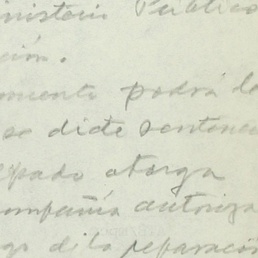 nisterio Público
ción.
mente podrá la
se dicte sentenci
lpado otorga
ompañía autoriza
go de la reparación